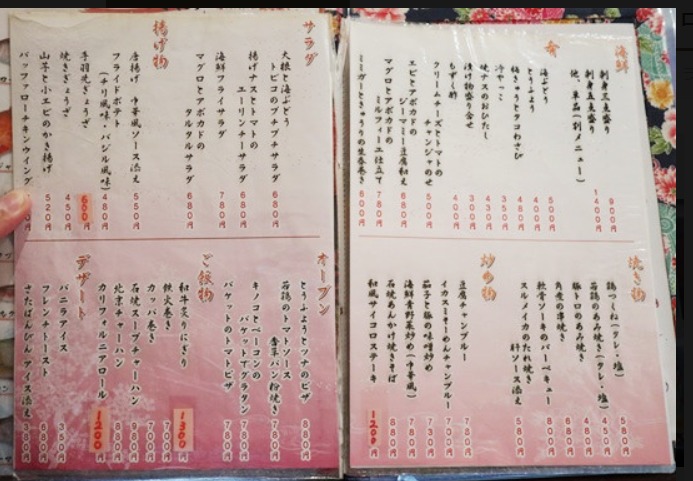 海鮮
刺身三点盛り 900円
刺身五点盛り 1400円
他、単品(別メニュー)
肴
海ぶどう 500円
とうふよう 400円
梅きゅうとタコわさび 480円
冷やっこ 350円
焼ナスのおひたし 400円
漬け物盛り合せ 300円
もずく酢 400円
クリームチーズとトマトの
チャンジャのせ 500円
エビとアボカドの
ジーマミー豆腐和え 680円
マグロとアボカドの
ミルフィーユ仕立て 780円
ミミガーときゅうりの生春巻き 600円
焼き物
鶏つくね(タレ・塩) 580円
若鶏のあみ焼き(タレ・塩) 450円
豚トロのあみ焼き 480円
角煮の串焼き
軟骨ソーキのバーベキュー 800円
スルメイカのたれ焼き
肝ソース 580円
炒め物
豆腐チャンプルー 780円
イカスミそーめんチャンプルー 700円
茄子と豚の味噌炒め 730円
海鮮青野菜炒め(中華風) 780円
石焼あんかけ焼きそば 880円
和風サイコロステーキ 1200円
サラダ
大根と海ぶどう
トビコのプチプチサラダ 680円
揚げナスとトマトの
エーリンチーサラダ 680円
海鮮フライサラダ 780円
マグロとアボカドの
タルタルサラダ 680円
揚げ物
唐揚げ 中華風ソース添え 550円
フライドポテト
(チリ風味・バジル風味) 480円
手羽先ぎょうざ 600円
焼きぎょうざ 450円
山芋と小エビのかき揚げ 520円
バッファローチキンウイング
オーブン
とうふようとツナのピザ 880円
若鶏のトマトソース
香草パン粉焼き 780円
キノコとベーコンの
バケットでグラタン 780円
バケットのトマトピザ 780円
ご飯物
和牛炙りにぎり 1300円
鉄火巻き 700円
カッパ巻き 700円
石焼スープチャーハン 980円
北京チャーハン 880円
カリフォルニアロール 1200円
デザート
バニラアイス 350円
フレンチトースト 680円
さたぱんびん アイス添え 380円